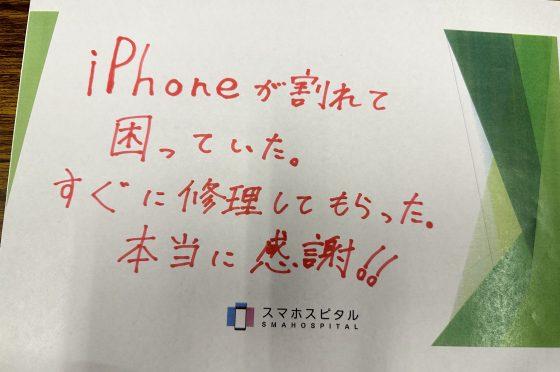 iPhoneが割れて
困っていた。
すぐに修理してもらった。
本当に感謝!!
スマホスピタル
SMAHOSPITAL